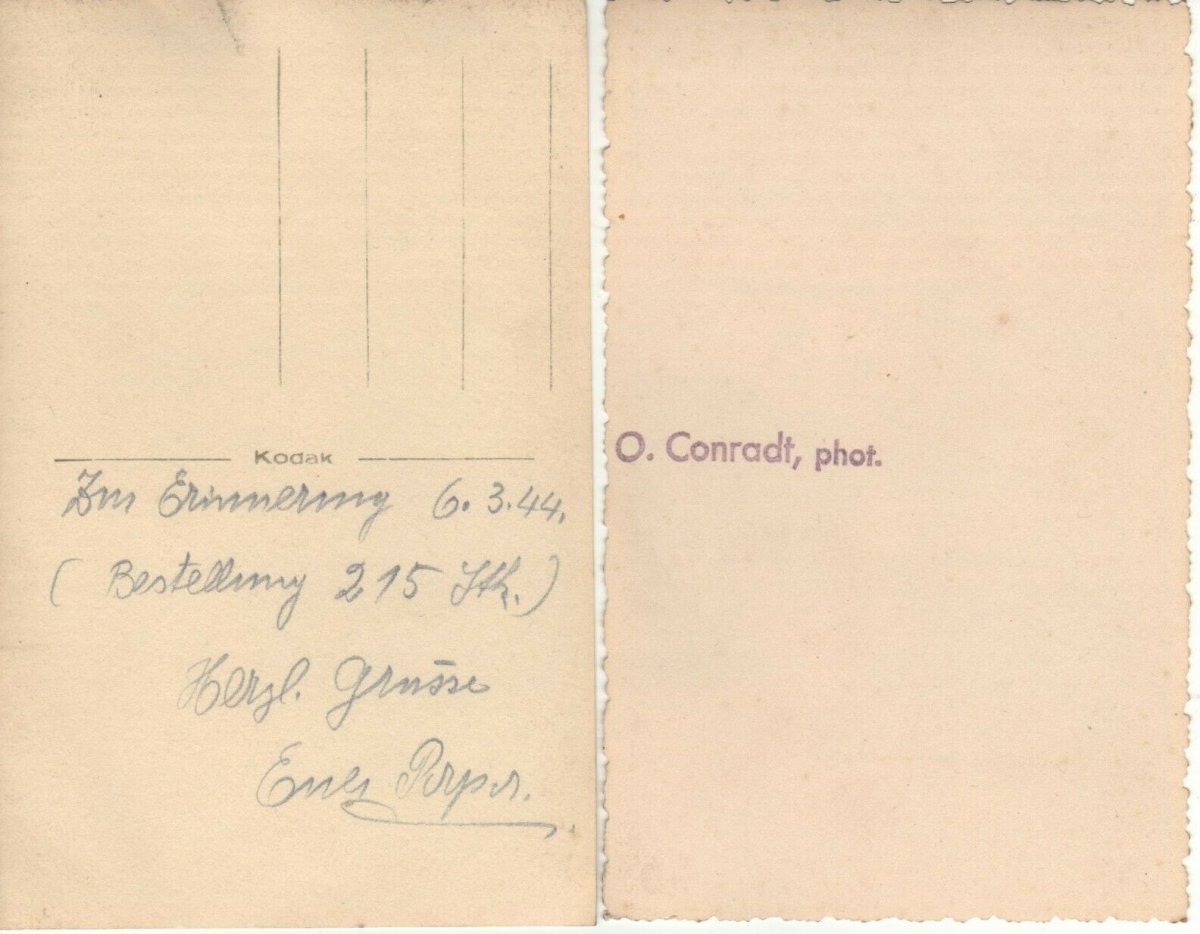 Kodak
Zur Erinnerung 6.3.44.
( Bestellung 215 Stk.)
Herzl. Grüsse
Euer
O. Conradt, phot.